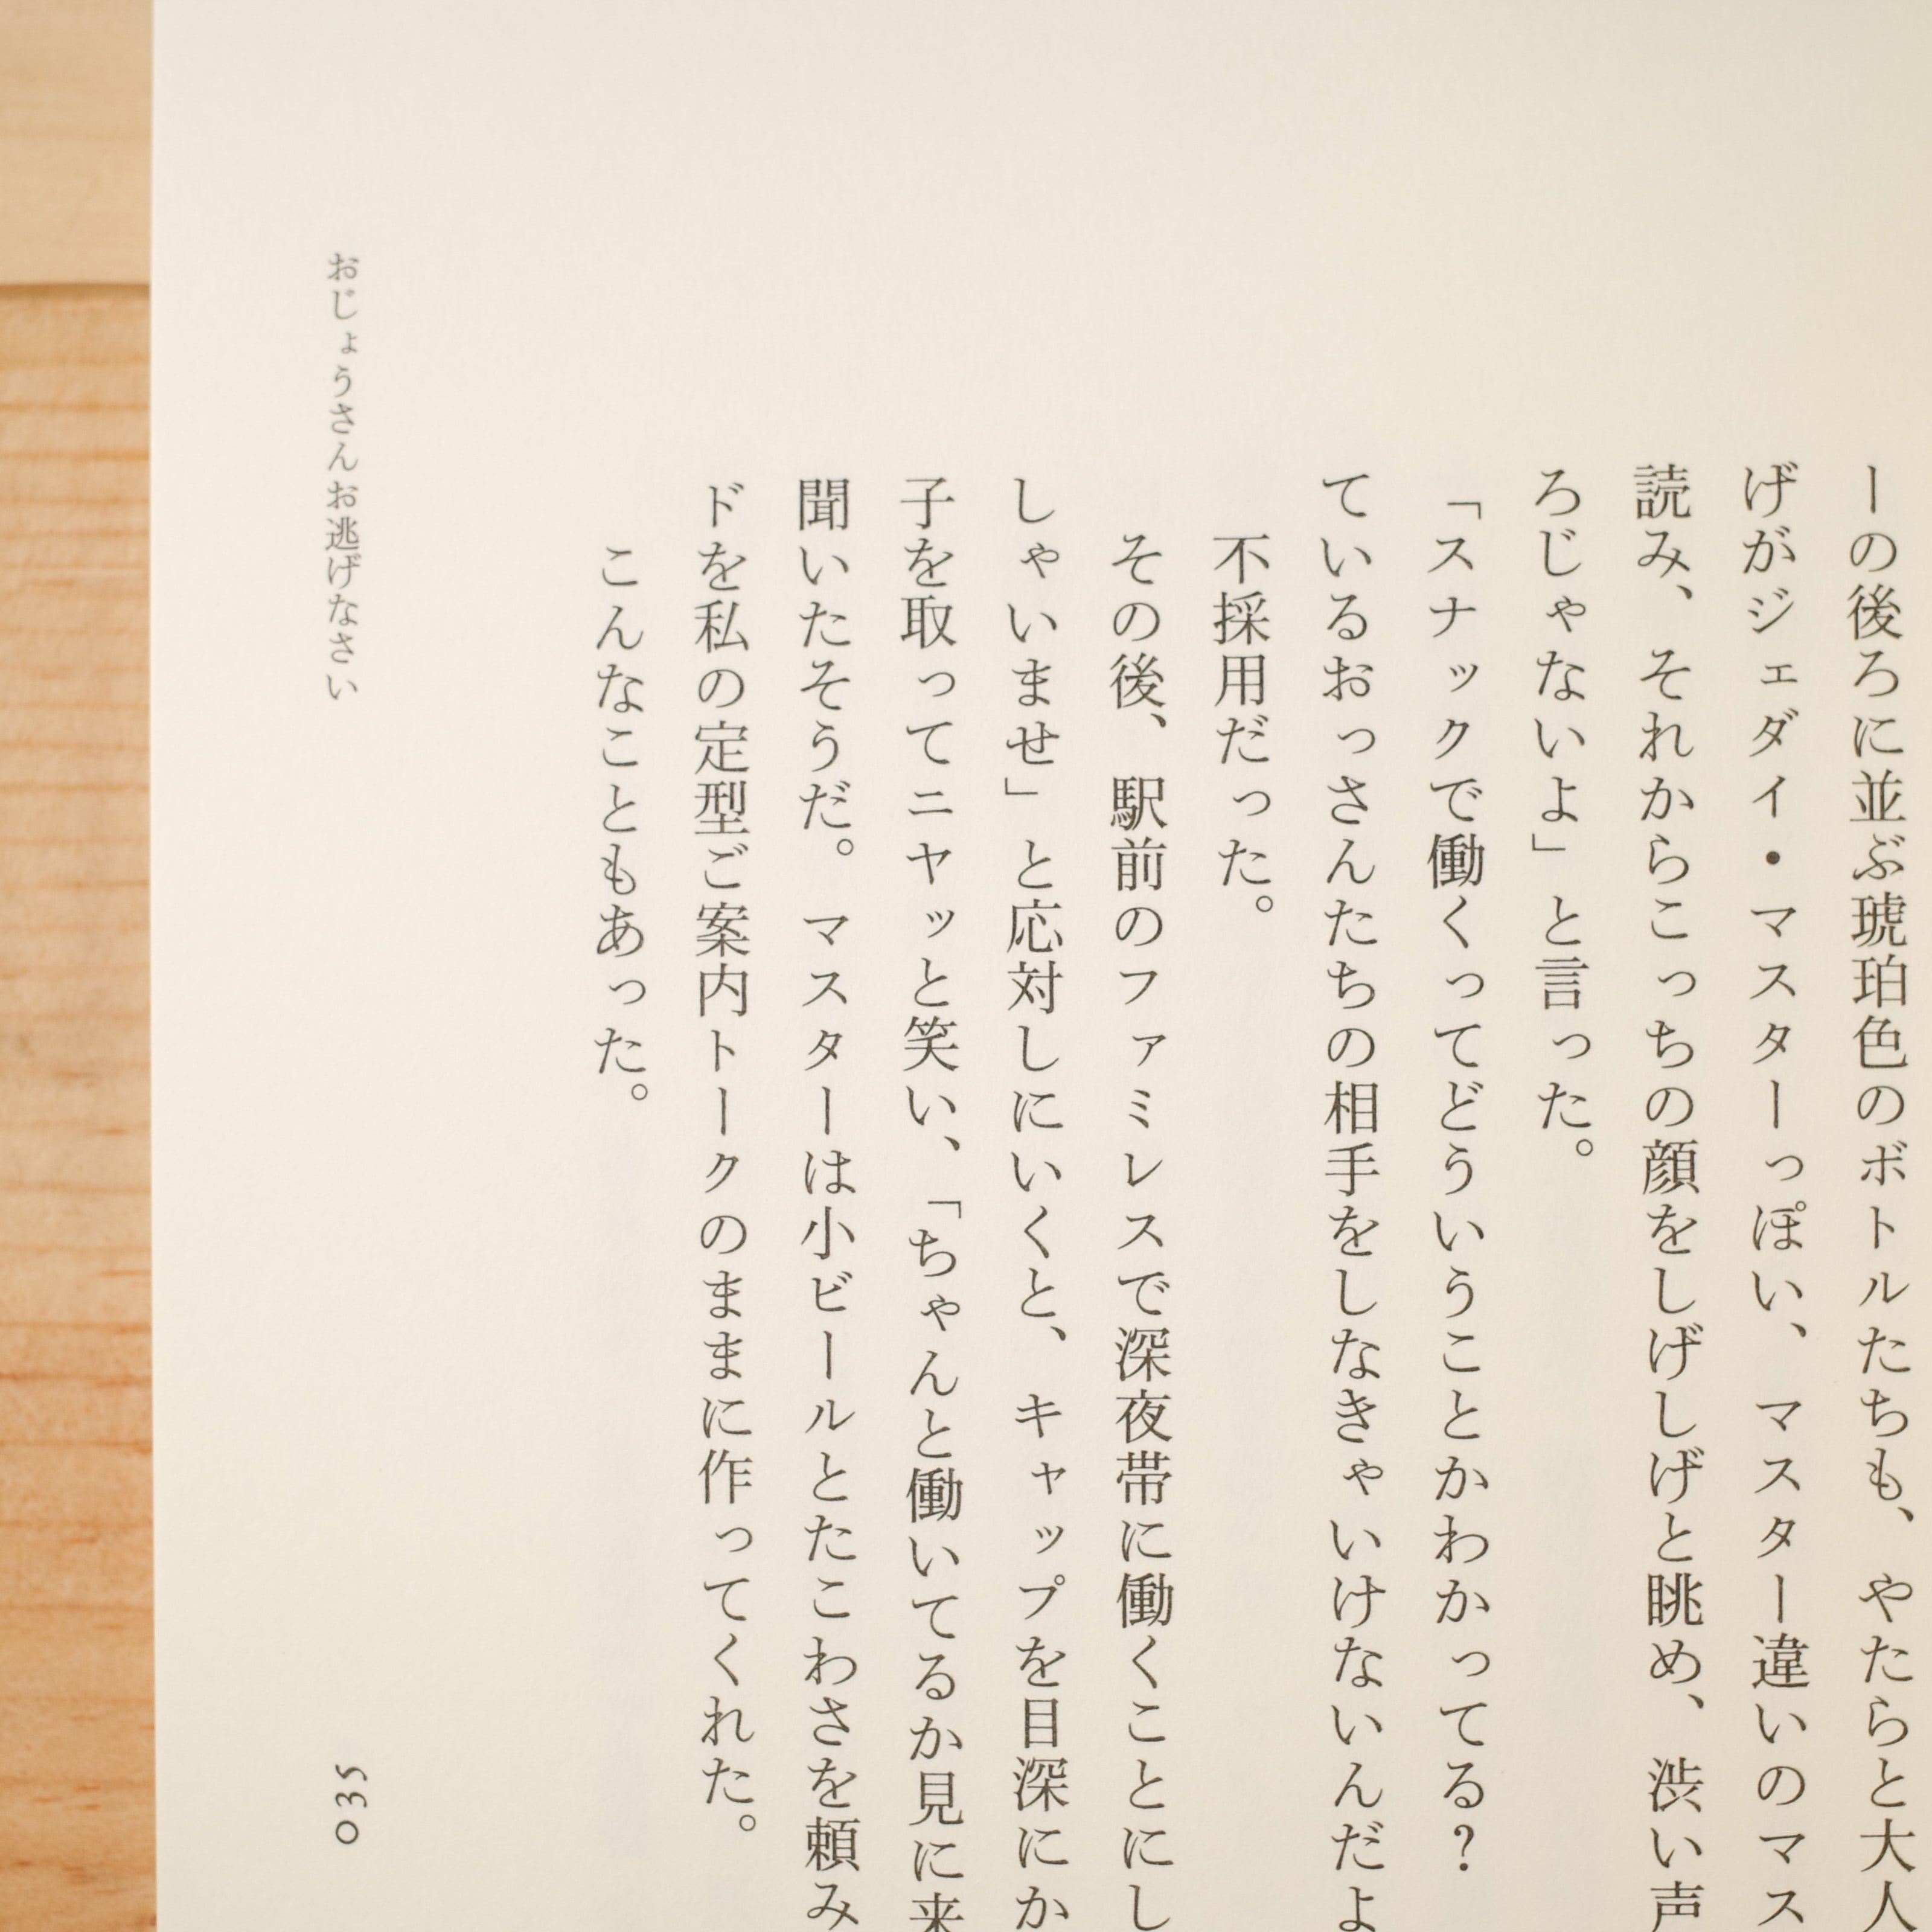 ーの後ろに並ぶ琥珀色のボトルたちも、やたらと大人
げがジェダイ・マスターっぽい、マスター違いのマス
読み、それからこっちの顔をしげしげと眺め、渋い声
ろじゃないよ」と言った。
「スナックで働くってどういうことかわかってる?
ているおっさんたちの相手をしなきゃいけないんだよ
不採用だった。
その後、駅前のファミレスで深夜帯に働くことにし
しゃいませ」と応対しにいくと、キャップを目深にか
子を取ってニヤッと笑い、「ちゃんと働いてるか見に来
聞いたそうだ。マスターは小ビールとたこわさを頼み
ドを私の定型ご案内トークのままに作ってくれた。
こんなこともあった。
おじょうさんお逃げなさい
035